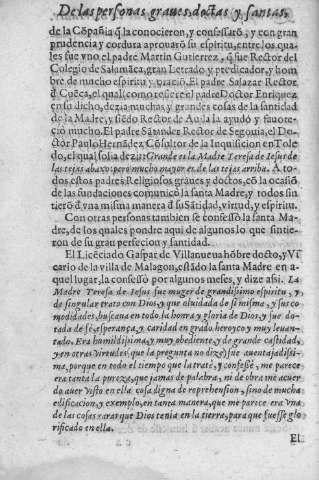 De las personas graues, doctas y santas,
de la Cõpañia q̃ la conocieron, y confessarõ, y con gran
prudencia y cordura aprouarõ su espiritu, entre los qua
les fue vno el padre Martin Gutierrez, q̃ fue Rector del
Colegio de Salamãca, gran Letrado y predicador, y hom
bre de mucho espiritu y oraciõ. El padre Salazar Rector
d̃ Cuẽca, el qual (como refiere el padre Doctor Enriquez
en su dicho, dezia muchas y grandes cosas de la santidad
de la Madre, y siẽdo Rector de Auila la ayudó y fauore-
ció mucho. El padre Sãtander Rector de Segouia, el Do-
ctor Paulo Hernãdez, Cõsultor de la Inquisicion en Tole
do, el qual solia dezir: Grande es la Madre Teresa de Iesus de
las tejas abaxo: pero mucho mayor es de las tejas arriba. A to-
dos estos padres Religiosos graues y doctos, cõ la ocasiõ
de las fundaciones comunicó la santa Madre, y todos sin
tierõ d̃ vna misma manera d̃ su Sãtidad, virtud, y espiritu.
Con otras personas tambien se confessó la santa Ma-
dre, de los quales pondre aqui de algunos lo que sintie-
ron de su gran perfecion y santidad.
El Licẽciado Gaspar de Villanueua hõbre docto, y Vi
cario de la villa de Malagon, estãdo la santa Madre en a-
quel lugar, la confessó por algunos meses, y dize assi. La
Madre Teresa de Iesus fue muger de grandissimo espiritu, y
de singular trato con Dios, y que oluidada de si misma, y sus co-
modidades, buscaua en todo la honra y gloria de Dios, y fue do-
tada de fè, esperança, y caridad en grado heroyco y muy leuan-
tado. Era humildissima, y muy obediente, y de grande castidad,
y en otras virtudes, que la pregunta no dize, fue auentajadissi-
ma, porque en todo el tiempo que la tratè, y confessè, me parece
era tanta la pureza, que jamas de palabra, ni de obra me acuer
do auer visto en ella cosa digna de reprehension, sino de mucha
edificacion, y exemplo, en tanta manera, que me parece era vna
de las cosas raras que Dios tenia en la tierra, para que fuesse glo
rificado en ella.
El